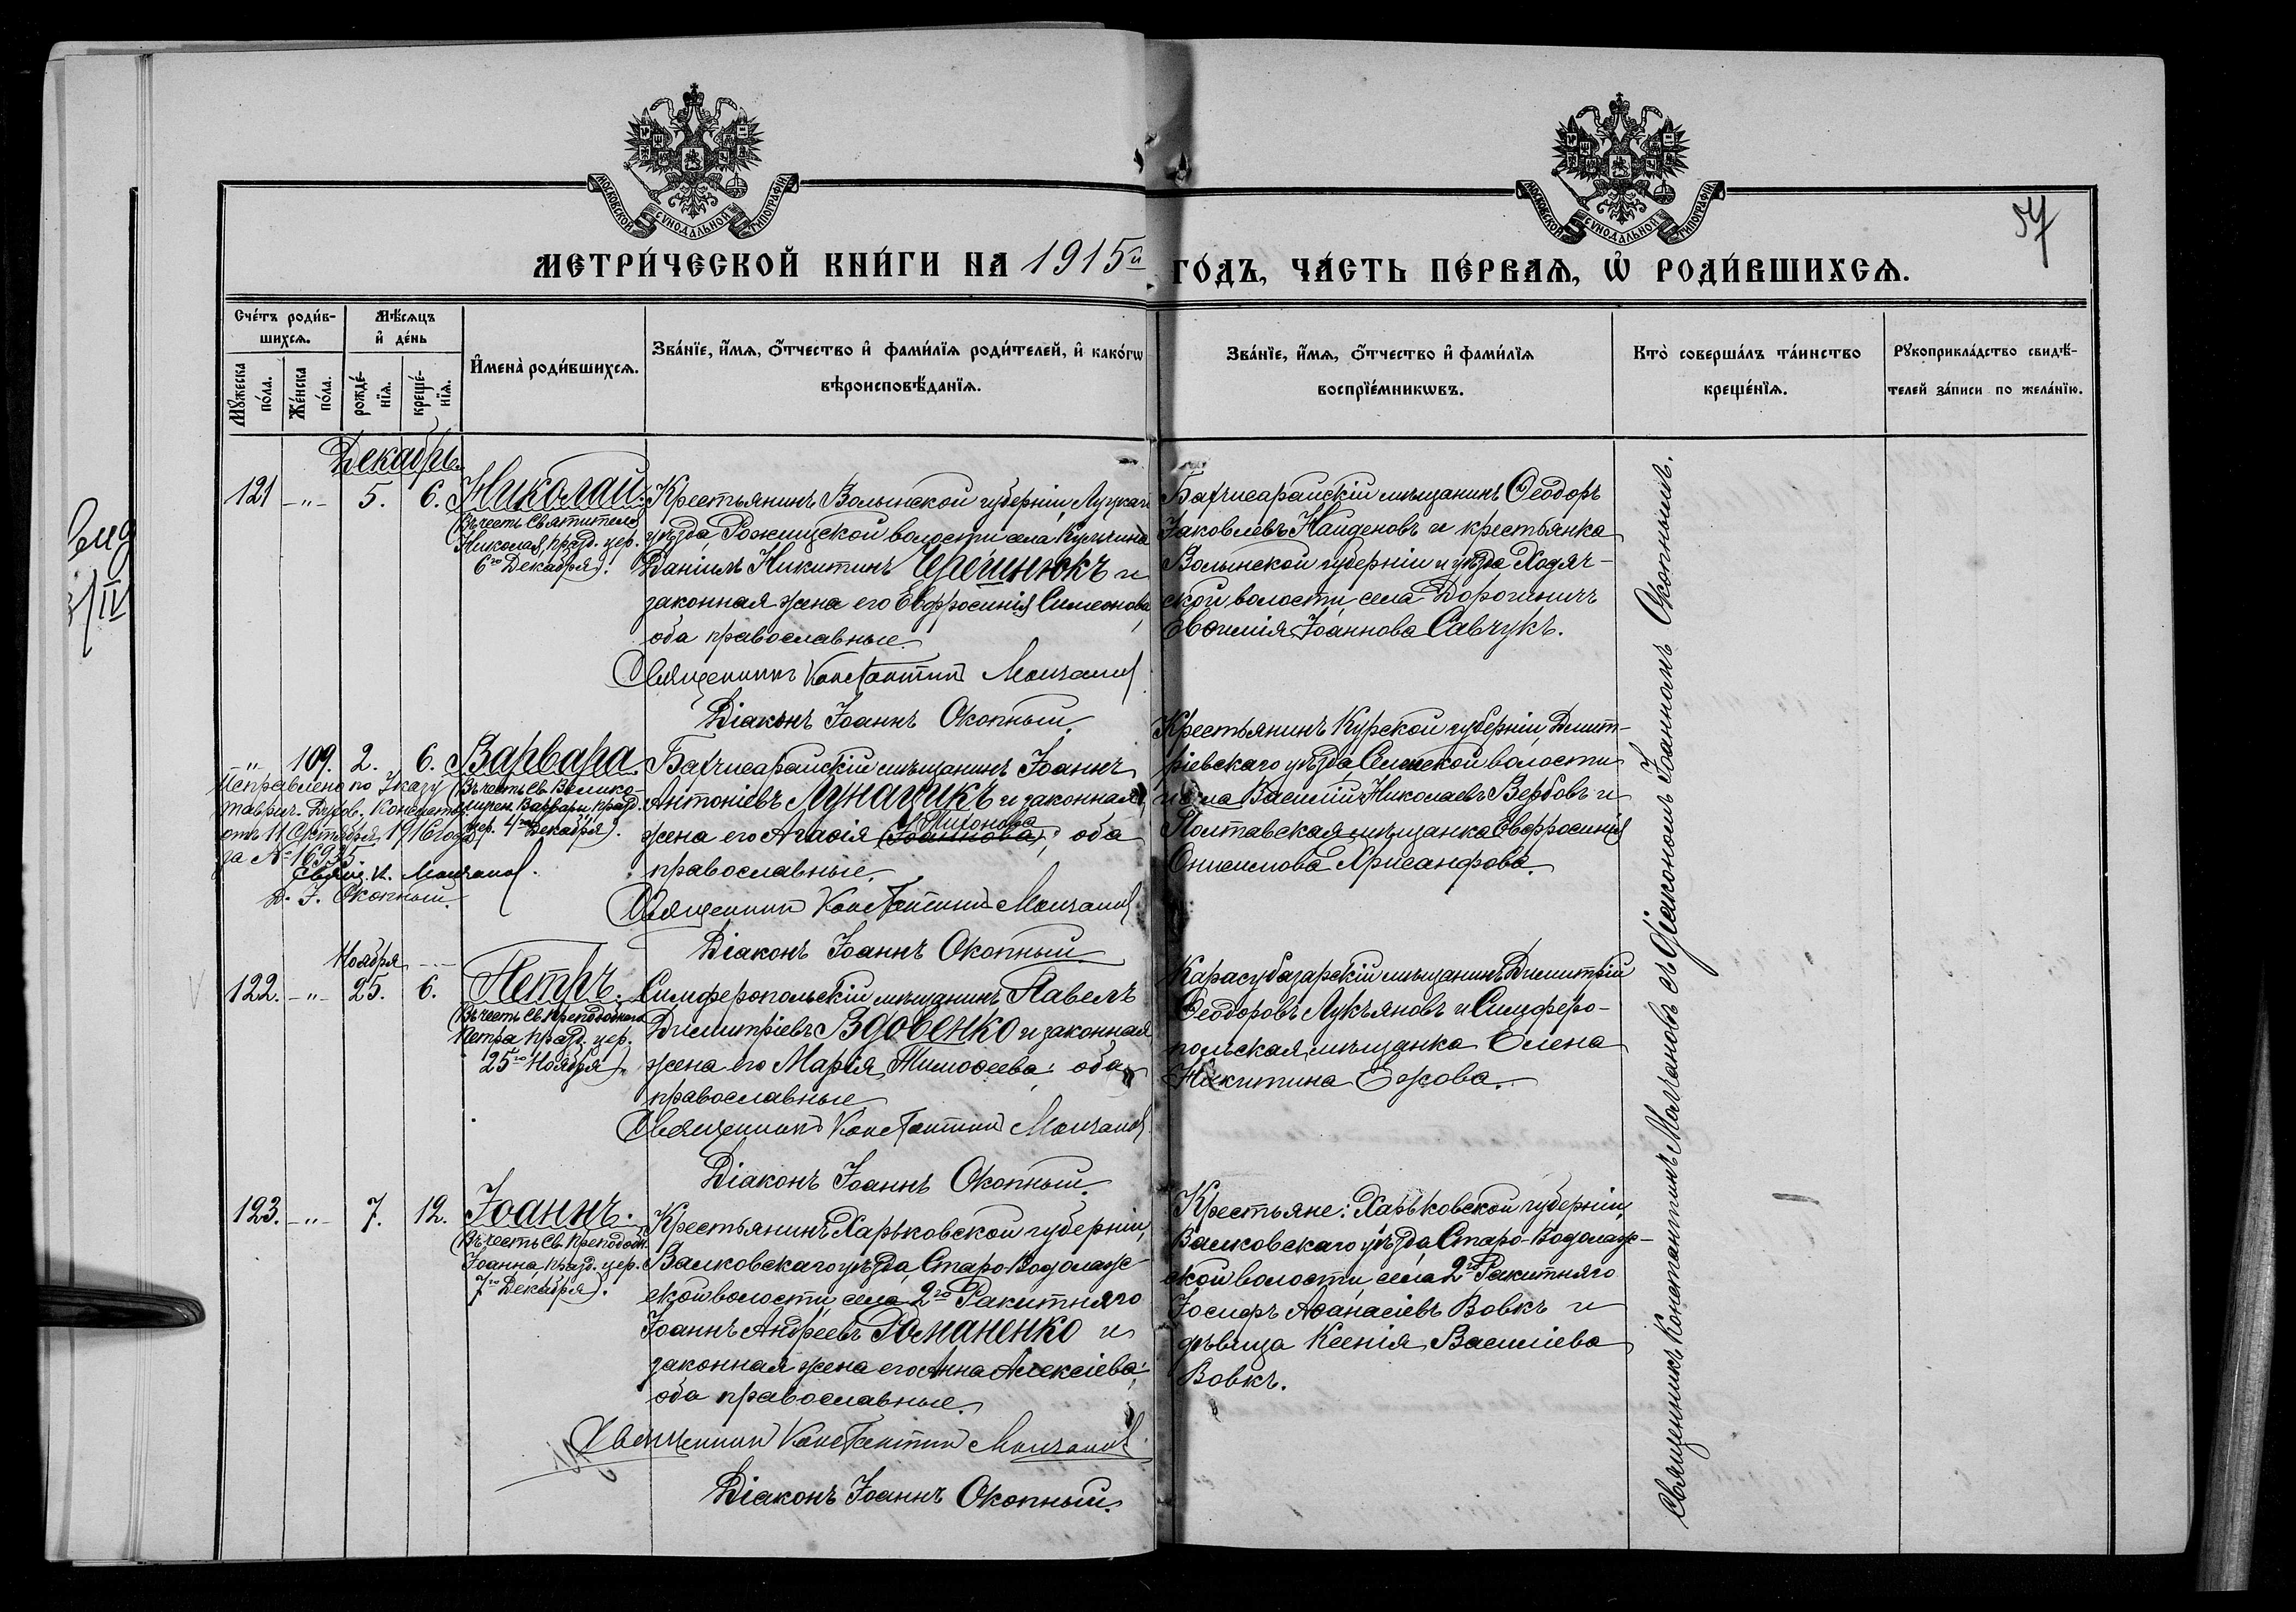 МОСКОВСКОЙ СѴНОДАЛЬНОЙ ТИПОГРАФІИ
МОСКОВСКОЙ СѴНОДАЛЬНОЙ ТИПОГРАФІИ
МЕТРИ́ЧЕСКОЙ КНИ́ГИ НА 1915й ГО́ДЪ, ЧА́СТЬ ПЕ́РВАѦ, Ѡ҆ РОДИ́ВШИХСѦ.
57
Сче́тъ роди́в-
шихсѧ.
Мꙋ́жеска по́ла.
Же́нска по́ла.
Мѣ́сѧцъ
и҆ де́нь
рожде́-
нїѧ.
креще́-
нїѧ.
И҆мена̀ роди́вшихсѧ.
Зва́нїе, и҆́мѧ, ѻ҆́тчество и҆ фами́лїѧ роди́телей, и҆ како́гѡ
вѣроисповѣ́данїѧ.
Зва́нїе, и҆́мѧ, ѻ҆́тчество и҆ фами́лїѧ
воспрїе́мникѡвъ.
Кто̀ соверша́лъ та́инство
креще́нїѧ.
Рꙋкоприкла́дство свидѣ́-
телей за́писи по жела́нїю.
Декабрь.
121 -"- 5. 6. Николай.
(Въ честь Святителя
Николая, празд. цер.
6го Декабря).
Крестьянинъ Волынской губерніи, Луцкаго
уѣзда Рожищской волости села Кульчина
Даніилъ Никитинъ Черешнюкъ и
законная жена его Евфросинія Симеонова,
оба православные.
Священникъ Константин Молчанов
Діаконъ Іоаннъ Окопный.
Бахчисарайскій мѣщанинъ Ѳеодоръ
Іаковлевъ Найденовъ и крестьянка
Волынской губерніи и уѣзда Ходяч-
ской волости, села Дорогиничъ
Евѳимія Іоаннова Савчукъ.
-"- 109. 2. 6. Варвара.
(Въ честь Св. Велико-
мучен. Варвары, празд.
цер. 4го Декабря).
Исправлено по Указу
Таврич. Духов. Консистор.
отъ 11 Октября 1916 года
за № 16935
Свящ. К. Молчанов.
Д. І. Окопный.
Бахчисарайскій мѣщанинъ Іоаннъ
Антоніевъ Лунащикъ и законная
жена его Агаѳія (Іоаннова) Тихонова; оба
православные.
Священник Константин Молчанов
Діаконъ Іоаннъ Окопный.
Крестьянинъ Курской губерніи, Дмит-
ріевскаго уѣзда, волости
и села Василій Николаевъ Вербовъ и
Полтавская мѣщанка Евфросинія
Онисимова Хрисанфова.
Ноября
122. -"- 25. 6. Петръ.
(Въ честь Св. Преподобнаго
Петра, празд. цер.
25го Ноября).
Симферопольскій мѣщанинъ Павелъ
Димитріевъ Вдовенко и законная
жена его Марія Тимоѳеева; оба
православные
Священникъ Константин Молчанов
Діаконъ Іоаннъ Окопный.
Карасубазарскій мѣщанинъ Димитрій
Ѳеодоровъ Лукьяновъ и Симферо-
польская мѣщанка Елена
Никитина Ежова.
123. -"- 7. 12. Іоаннъ.
(Въ честь Св. Преподобн.
Іоанна, празд. цер.
7го Декабря).
Крестьянинъ Харьковской губерніи,
Валковскаго уѣзда, Старо-Водолаж-
ской волости села 2го Ракитняго
Іоаннъ Андреевъ Романенко и
законная жена его Анна Алексіева;
оба православные.
Священник Константин Молчанов
Діаконъ Іоаннъ Окопный.
Крестьяне: Харьковской губерніи,
Валковскаго уѣзда, Старо-Водолаж-
ской волости, села 2го Ракитняго
Іосифъ Аѳанасіевъ Вовкъ и
дѣвица Ксенія Василіева
Вовкъ.
Священникъ Константинъ Молчановъ съ діакономъ Іоанномъ Окопнымъ.